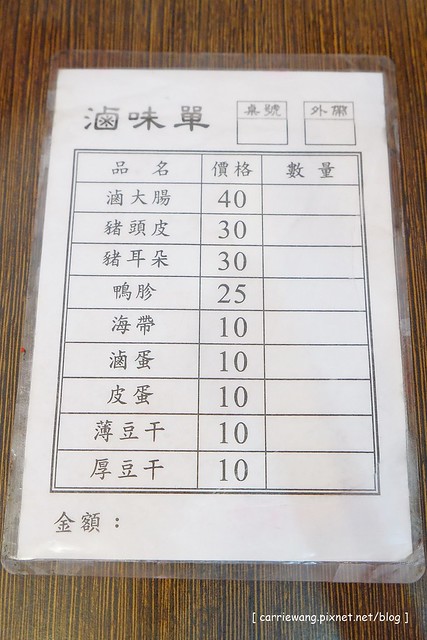 滷味單 桌號 外帶
品名 價格 數量
滷大腸 40
豬頭皮 30
豬耳朵 30
鴨胗 25
海帶 10
滷蛋 10
皮蛋 10
薄豆干 10
厚豆干 10
金額：
[ carriewang.pixnet.net/blog ]